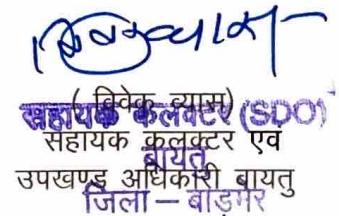 ( विवेक व्यास)
सहायक कलक्टर (SDO)
सहायक कलक्टर एवं
बायतु
उपखण्ड अधिकारी बायतु
जिला – बाड़मेर